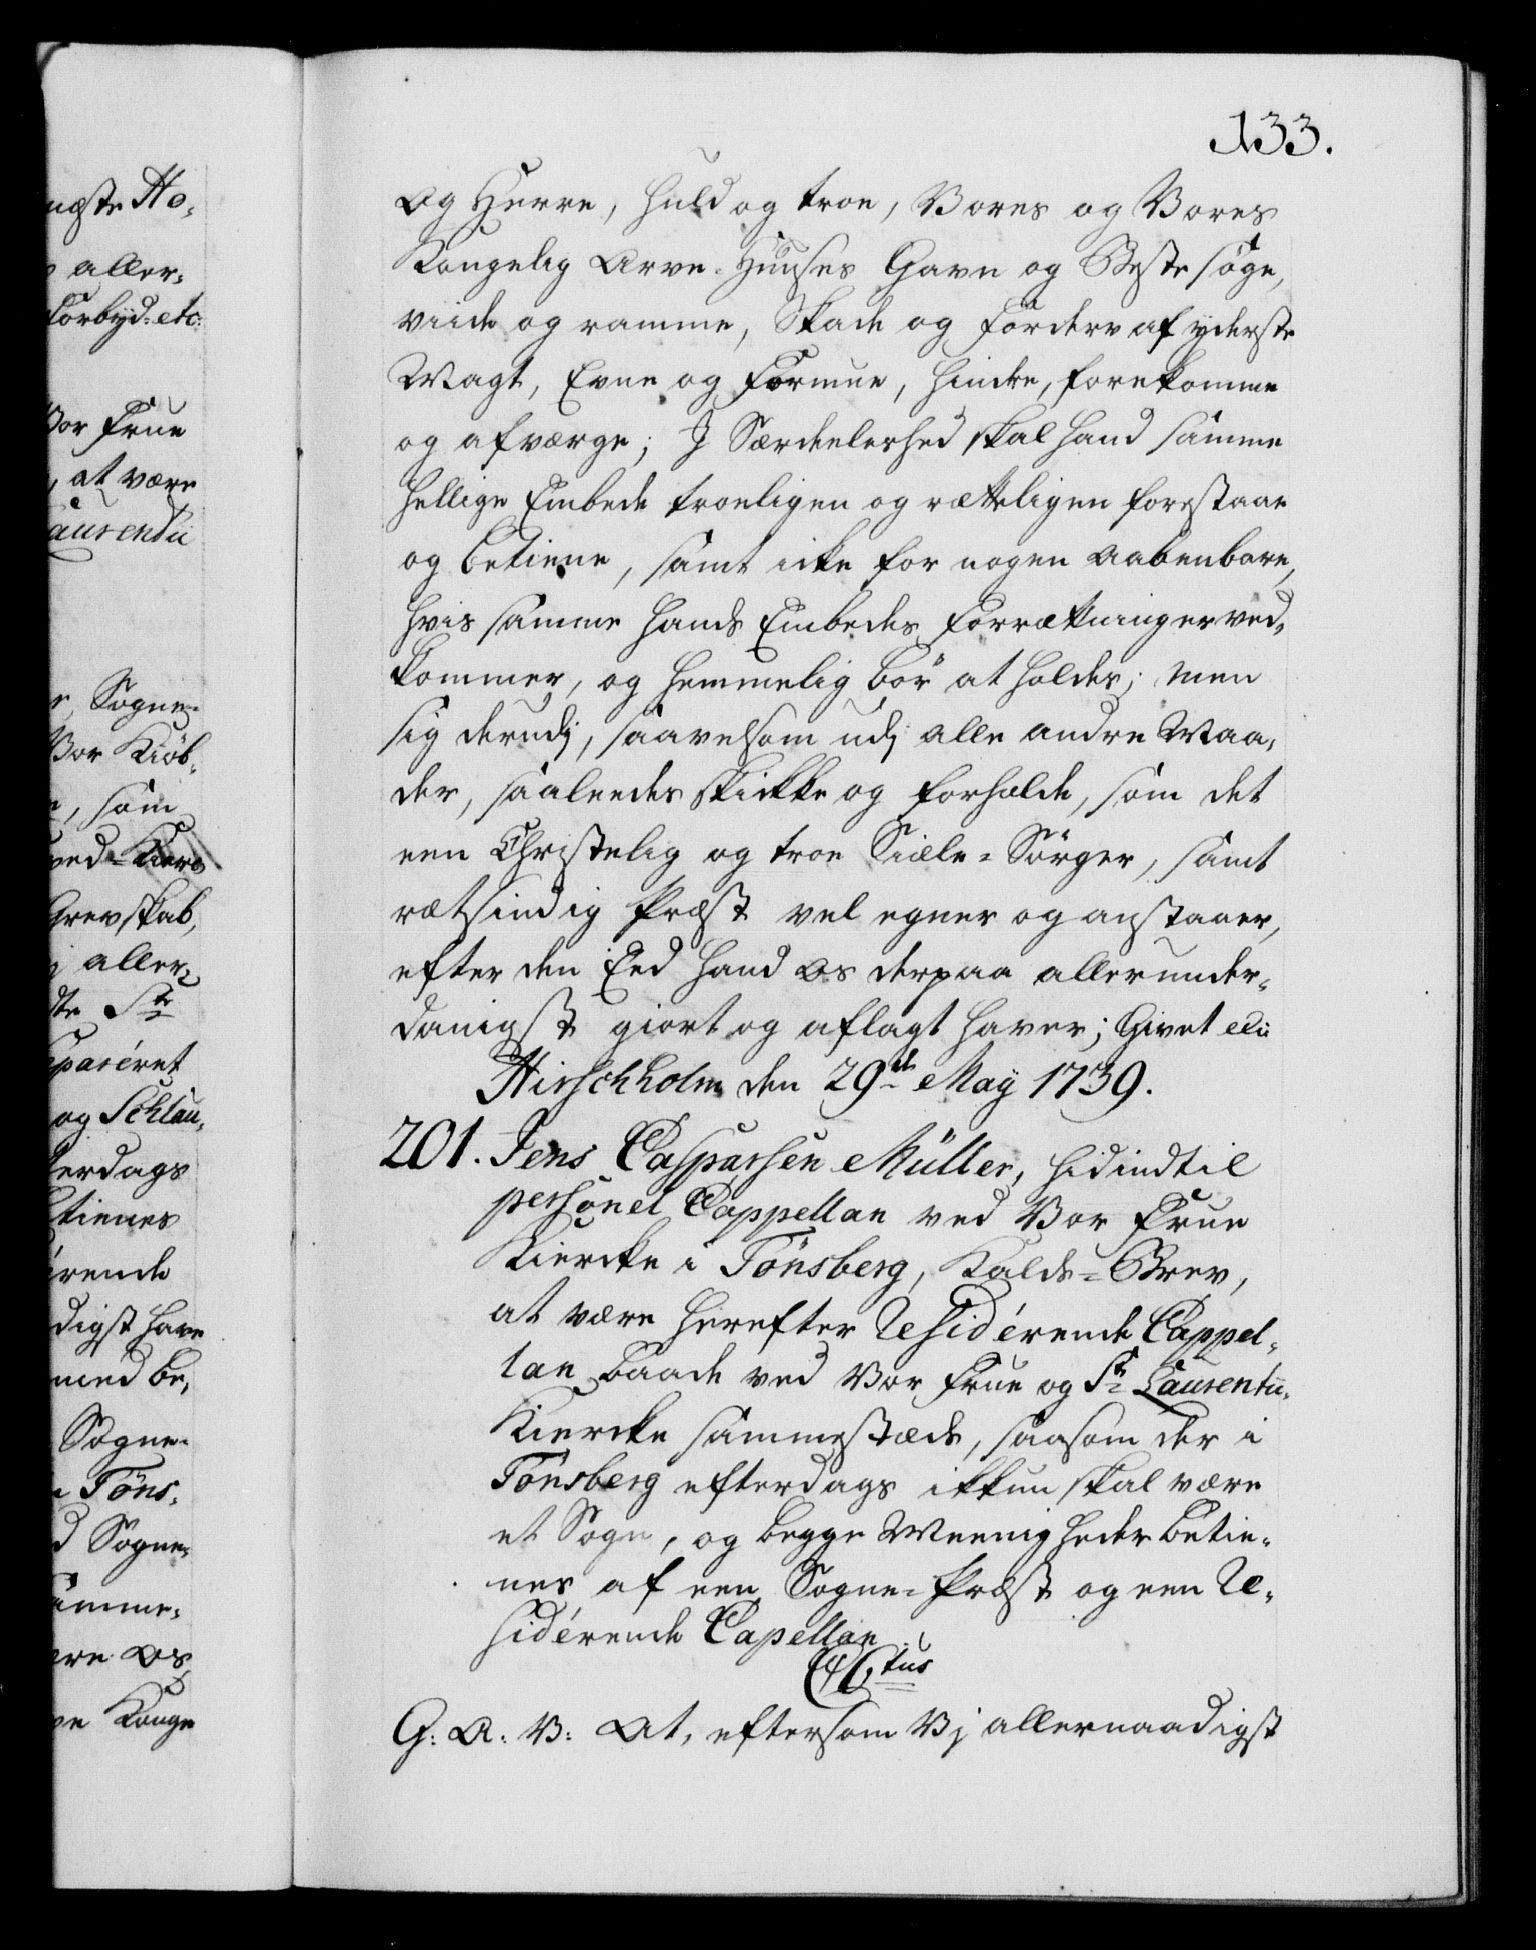 næste Ho-
aller-
Forbyd: etc:
Vor Frue
, at være
Laurentii
Sogne-
Vor Kiöb-
, som
ved Kierc
Grevskab,
aller-
Ste
pareret
og Schlau-
erdags
tienes
erende
digst have
med be-
Sogne-
Töns-
Sogne-
amme-
ere os
Konge
133.
og Herre, huld og troe, Vores og Vores
Kongelig Arve-Huuses Gavn og Beste söge,
viide og ramme, Skade og Forderv af yderste
Magt, Evne og Formue, hindre, forekomme
og afværge; J Særdeeleshed skal hand samme
hellige Embede troeligen og rætteligen forestaae
og betiene, samt icke for nogen aabenbare,
hvis samme hands Embedes Forrættninger ved-
kommer, og hemmelig bör at holdes; men
sig derudj, saavelsom udj alle andre Maa-
der, saaleedes skikke og forholde, som det
een Christelig og troe Siæle-Sörger, samt
rætsindig Præst vel egner og anstaaer,
efter den Eed hand os derpaa allerunder-
danigst giort og aflagt haver; Givet etc:
Hirschholm den 29de Maÿ 1739.
201. Jens Caspersen Müller, hidindtil
personel Cappellan ved Vor Frue
Kiercke i Tönsberg, Kalds-Brev,
at være herefter Residérende Cappel-
lan baade ved Vor Frue og St Laurentii-
Kiercke sammestæds, saasom der i
Tönsberg efterdags ikkun skal være
et Sogn, og begge Meenigheder betie-
nes af een Sogne-Præst og een Re-
sidérende Capellan.
C 6tus
G: A: V: At, eftersom Vj allernaadigst